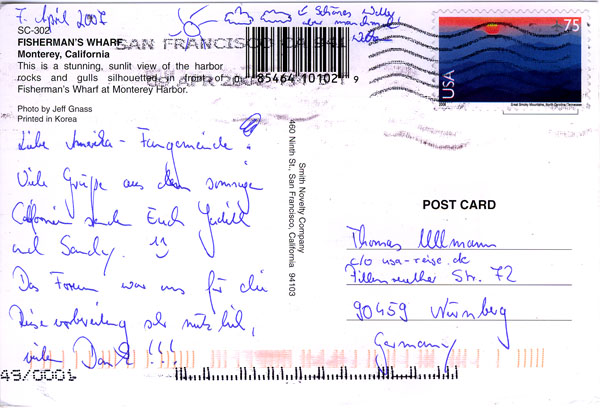 7. April 2007
← Schönes Wetter
aber manchmal
Wolken
SC-302
FISHERMAN'S WHARF
Monterey, California
This is a stunning, sunlit view of the harbor
rocks and gulls silhouetted in front of
Fisherman's Wharf at Monterey Harbor.
Photo by Jeff Gnass
Printed in Korea
SAN FRANCISCO CA 941
APR
85464 10102 9
75
USA
2006
Great Smoky Mountains, North Carolina/Tennessee
Liebe Amerika-Fangemeinde!
Viele Grüße aus dem sonnigen
Californien senden Euch Judith
und Sandy.
Das Forum war uns für die
Reisevorbereitung sehr nützlich,
vielen Dank!!!
Smith Novelty Company
460 Ninth St., San Francisco, California 94103
POST CARD
Thomas Ullmann
c/o usa-reise.de
Pillenreuther Str. 72
90459 Nürnberg
Germany
49/0001